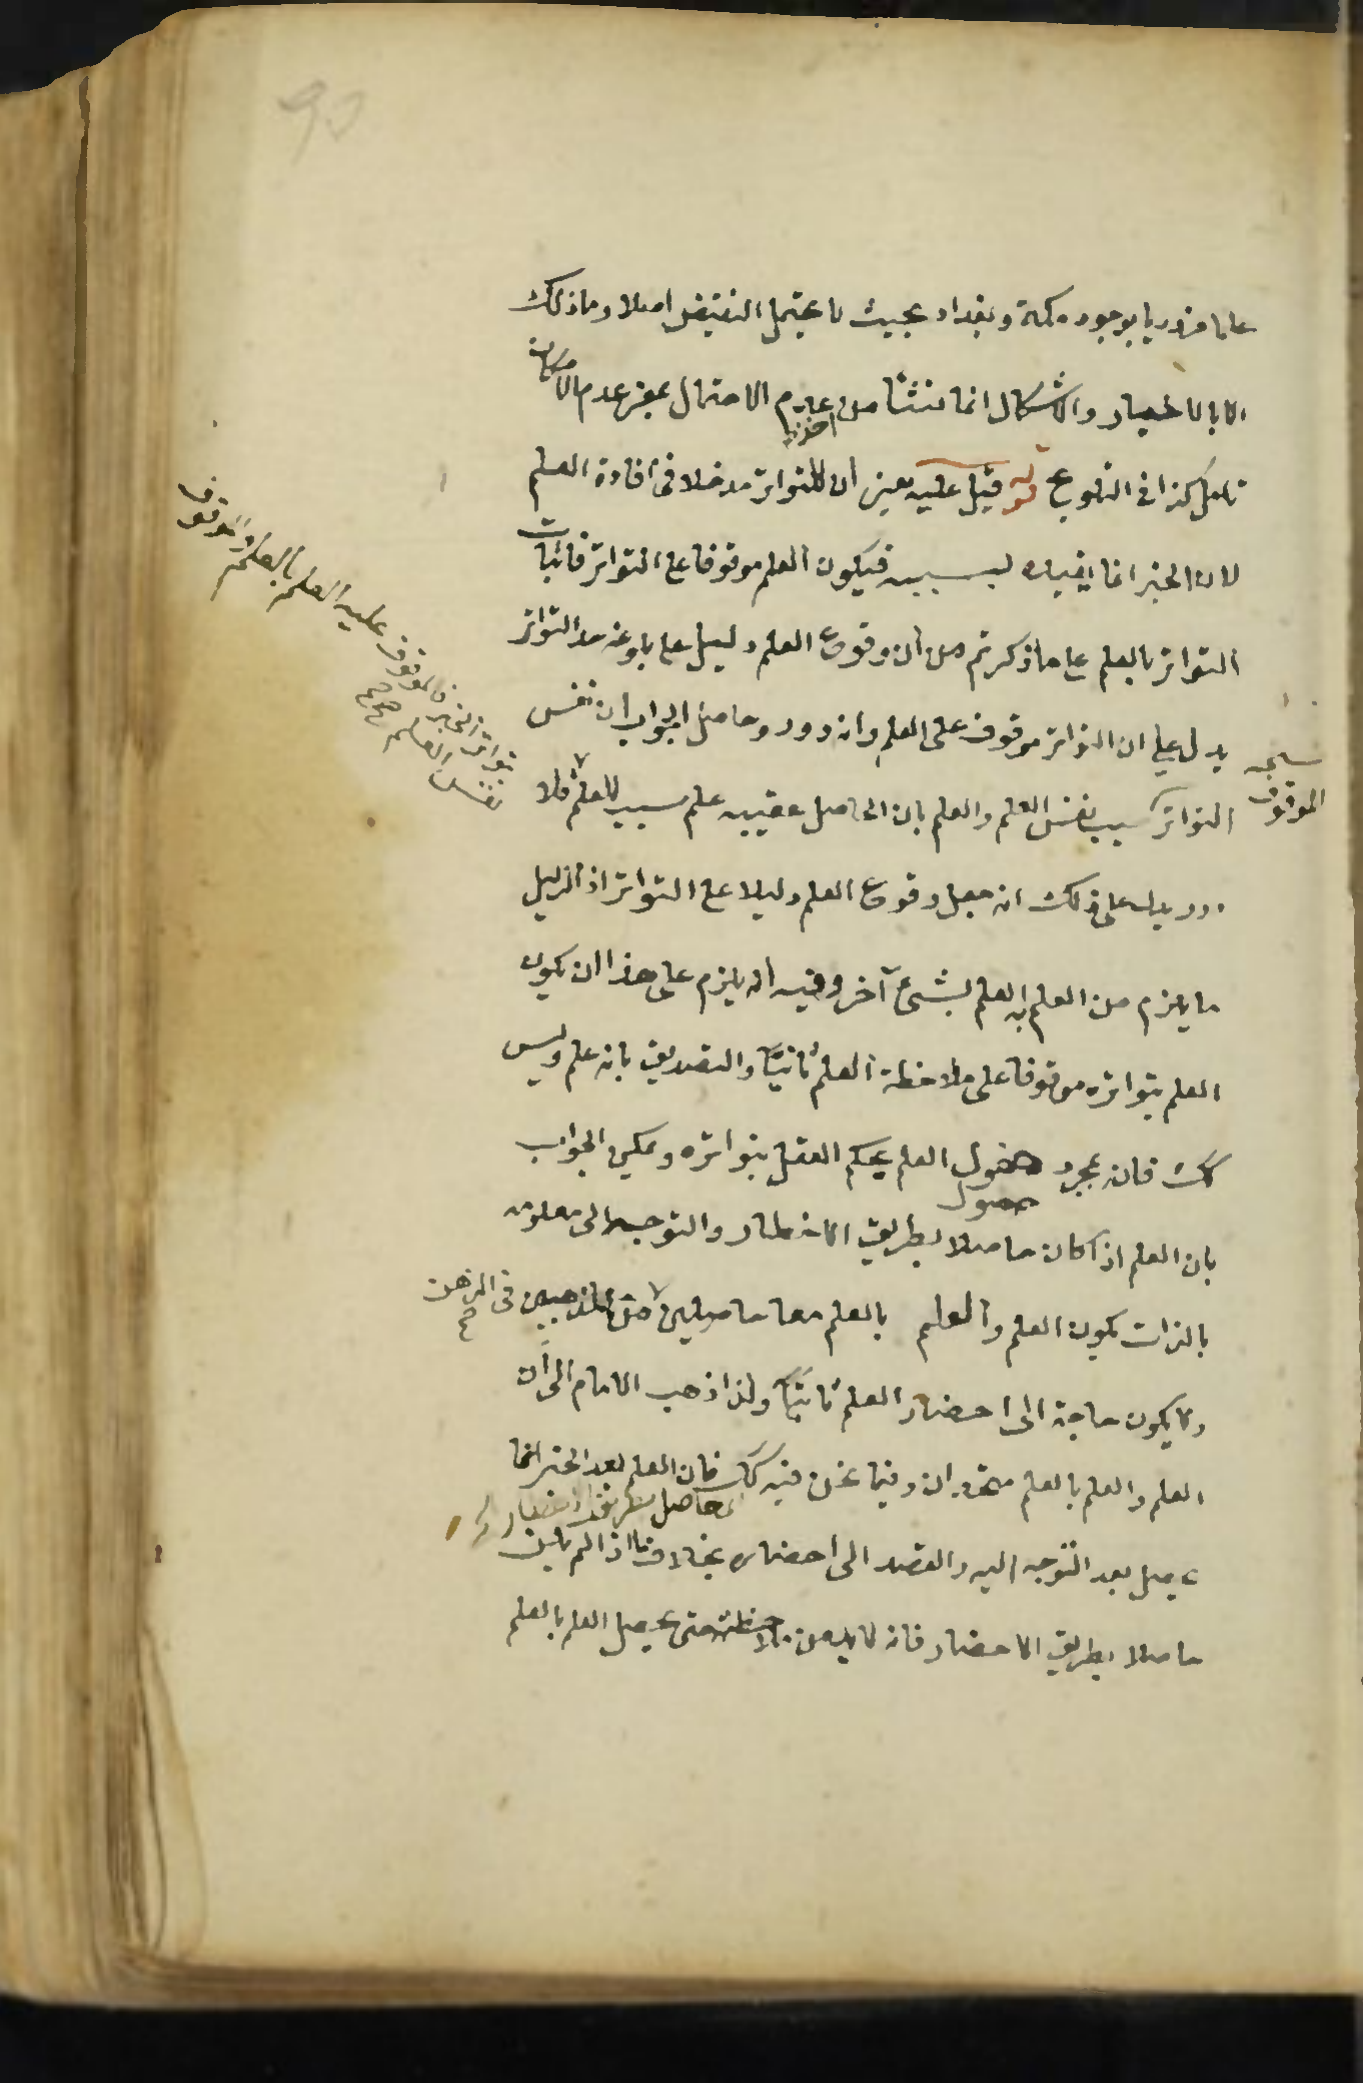 علما ضروريا بوجود مكة وبغداد بحيث لا يحتمل النقيض اصلا وما ذلك
الا بالاخبار والاشكال انما نشأ من عدم الاحتمال بمعنى عدم الامكان
تامل كذا فى التلويح قوله قيل عليه يعنى ان للتواتر مدخلا فى افادة العلم
لان الخبر انما يفيده بسببه فيكون العلم موقوفا على التواتر فاثبات
التواتر بالعلم على ما ذكرتم من ان وقوع العلم دليل على بلوغه حد التواتر
يدل على ان التواتر موقوف على العلم وانه دور وحاصل الجواب ان نفس
التواتر سبب نفس العلم والعلم بان الحاصل عقيبه علم سبب للعلم فلا
دور يدل على ذلك انه جعل وقوع العلم دليلا على التواتر اذ الدليل
ما يلزم من العلم به العلم بشئ آخر وفيه انه يلزم على هذا ان يكون
العلم بتواتره موقوفا على ملاحظة العلم ثانيا والتصديق بانه علم وليس
كك فان بمجرد حصول العلم يحكم العقل بتواتره ويمكن الجواب
حصول
بان العلم اذا كان حاصلا بطريق الاخطار والتوجه الى معلومه
بالذات يكون العلم والعلم بالعلم معا حاصلين فى الذهن
صح
ولا يكون حاجة الى احضار العلم ثانيا ولذا ذهب الامام الى ان
العلم والعلم بالعلم متحدان وفيما نحن فيه كك فان العلم بعد الخبر انما
يحصل بعد التوجه اليه والقصد الى احضاره بخلاف ما اذا لم يكن
حاصلا بطريق الاحضار فانه لا بد من ملاحظته حتى يحصل العلم بالعلم
بتواتر الخبر فالموقوف عليه العلم بالعلم والموقوف
نفس العلم صح
الموقوف
95